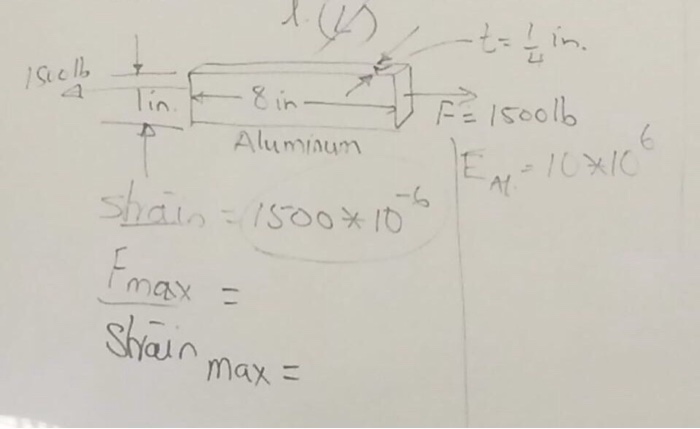 t = 1/4 in.
1500lb
1in.
8 in
F = 1500lb
Aluminum
E Al. = 10*10^6
Strain = 1500*10^-6
Fmax =
Strain max =